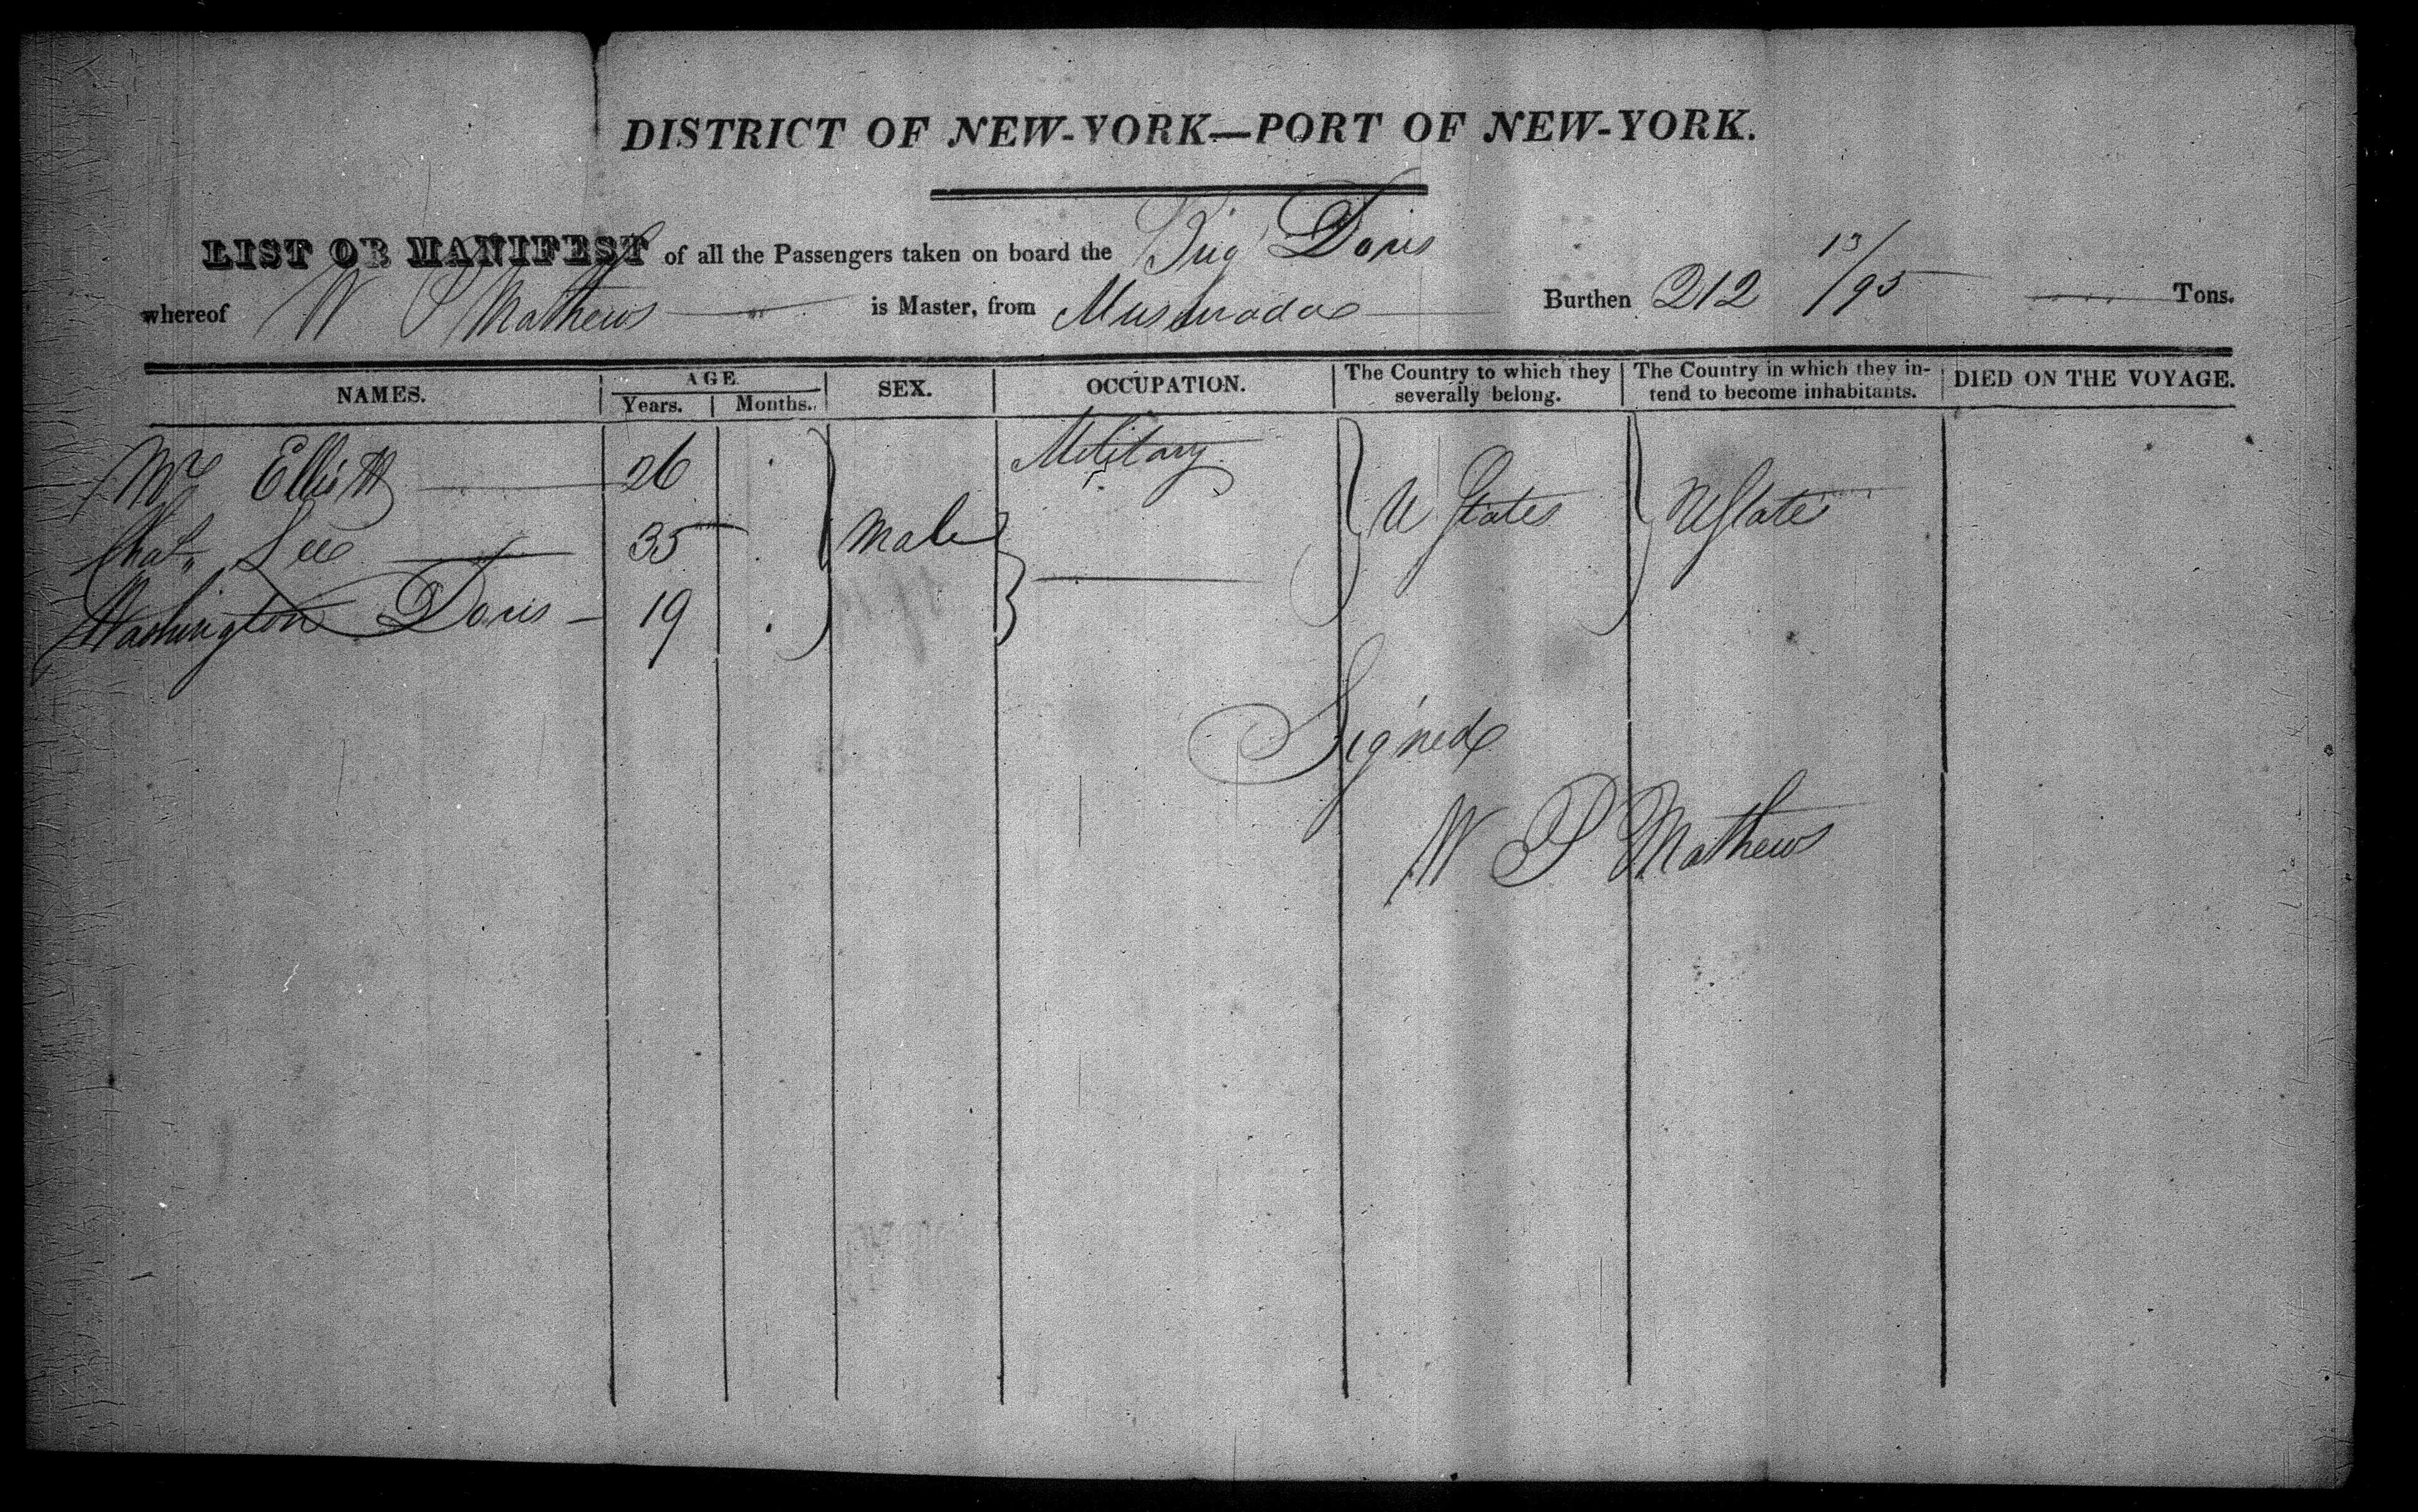 DISTRICT OF NEW-YORK—PORT OF NEW-YORK.
LIST OR MANIFEST of all the Passengers taken on board the Brig Doris
whereof W P Mathews is Master, from Burthen 212 13/95 Tons.
NAMES. AGE. SEX. OCCUPATION. The Country to which they severally belong. The Country in which they in-tend to become inhabitants. DIED ON THE VOYAGE.
Years. Months.
Mr Elliott 26 Military
Chas. Lee 35 Male U States UState
Washington Doris 19
Signed
W P Mathews